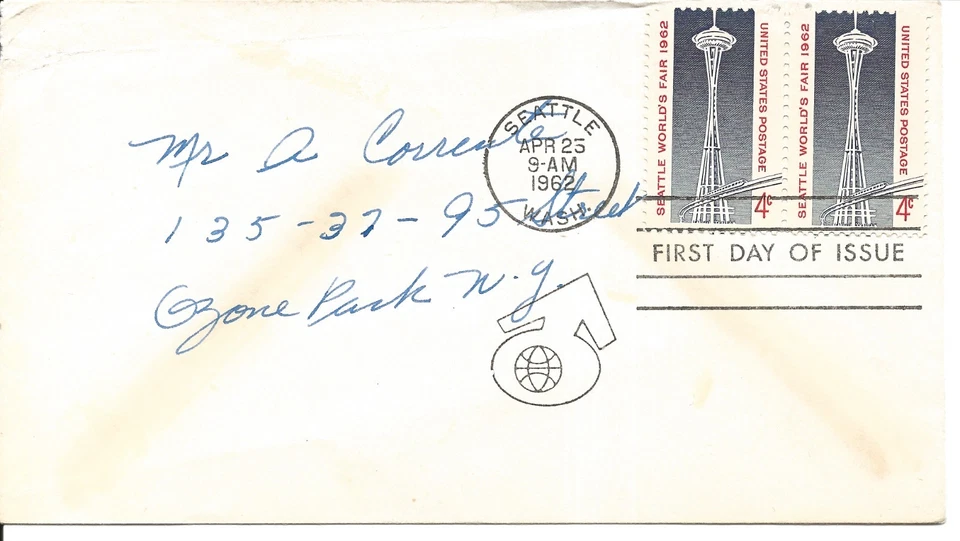 SEATTLE WORLD'S FAIR 1962
UNITED STATES POSTAGE
4c
SEATTLE WORLD'S FAIR 1962
UNITED STATES POSTAGE
4c
SEATTLE
APR 25
9-AM
1962
WASH.
FIRST DAY OF ISSUE
Mr A Corrente
135-37-95 Street
Ozone Park N.Y.